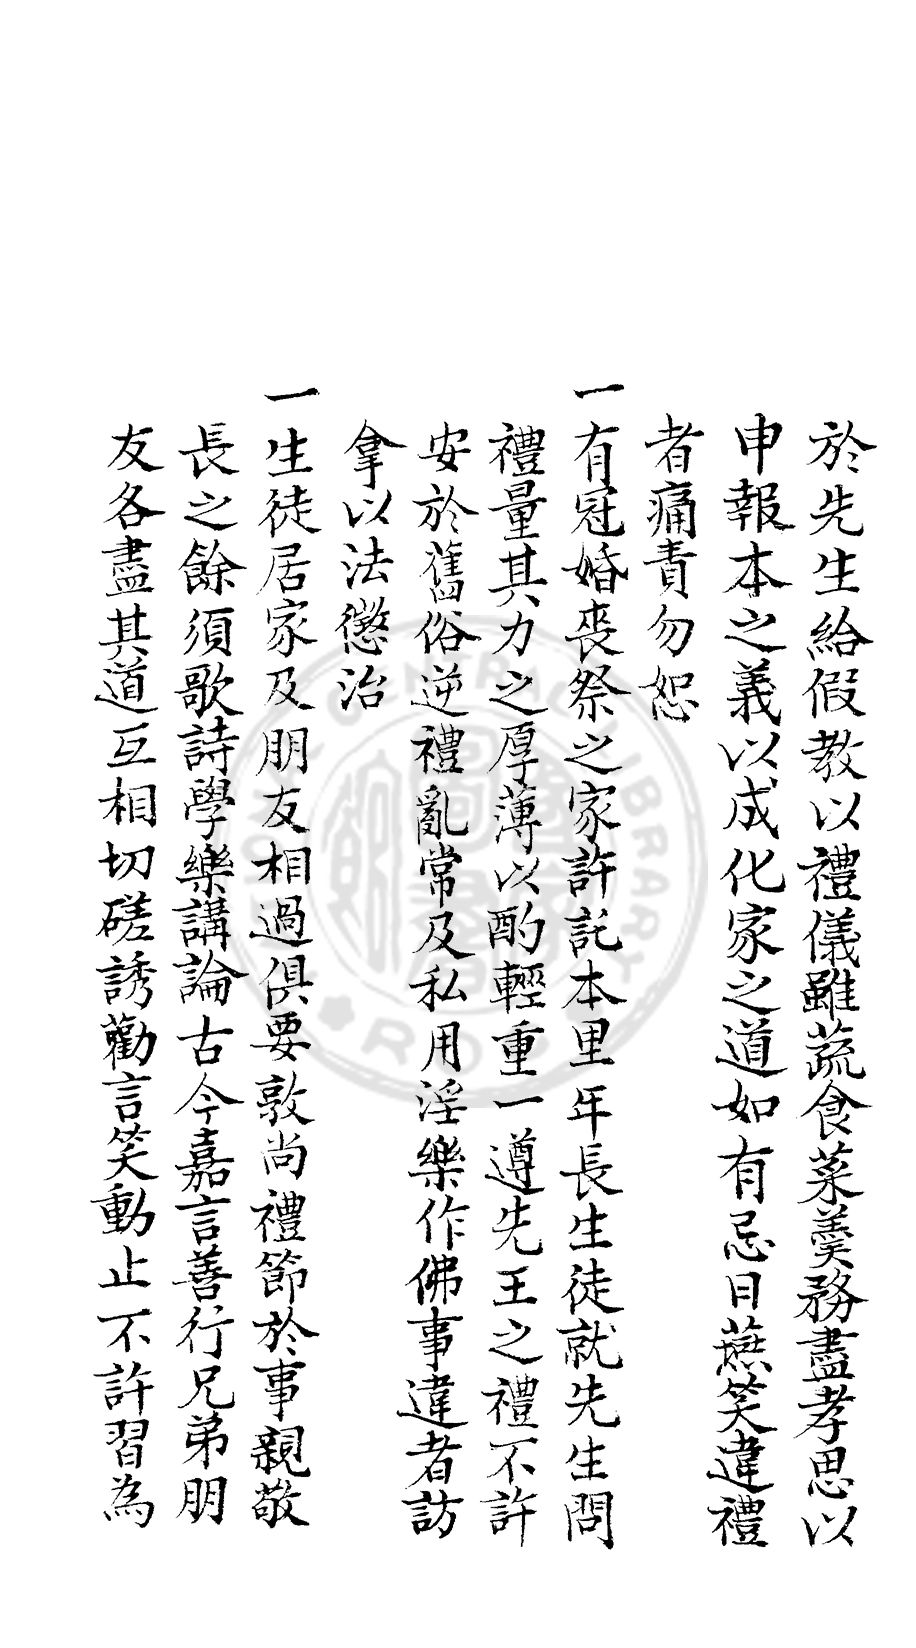 於先生給假教以禮儀雖蔬食菜羹務盡孝思以
申報本之義以成化家之道如有忌日讌笑違禮
者痛責勿恕
一有冠婚喪祭之家許託本里年長生徒就先生問
禮量其力之厚薄以酌輕重一遵先王之禮不許
安於舊俗逆禮亂常及私用淫樂作佛事違者訪
拿以法懲治
一生徒居家及朋友相過俱要敦尚禮節於事親敬
長之餘須歌詩學樂講論古今嘉言善行兄弟朋
友各盡其道互相切磋誘勸言笑動止不許習為